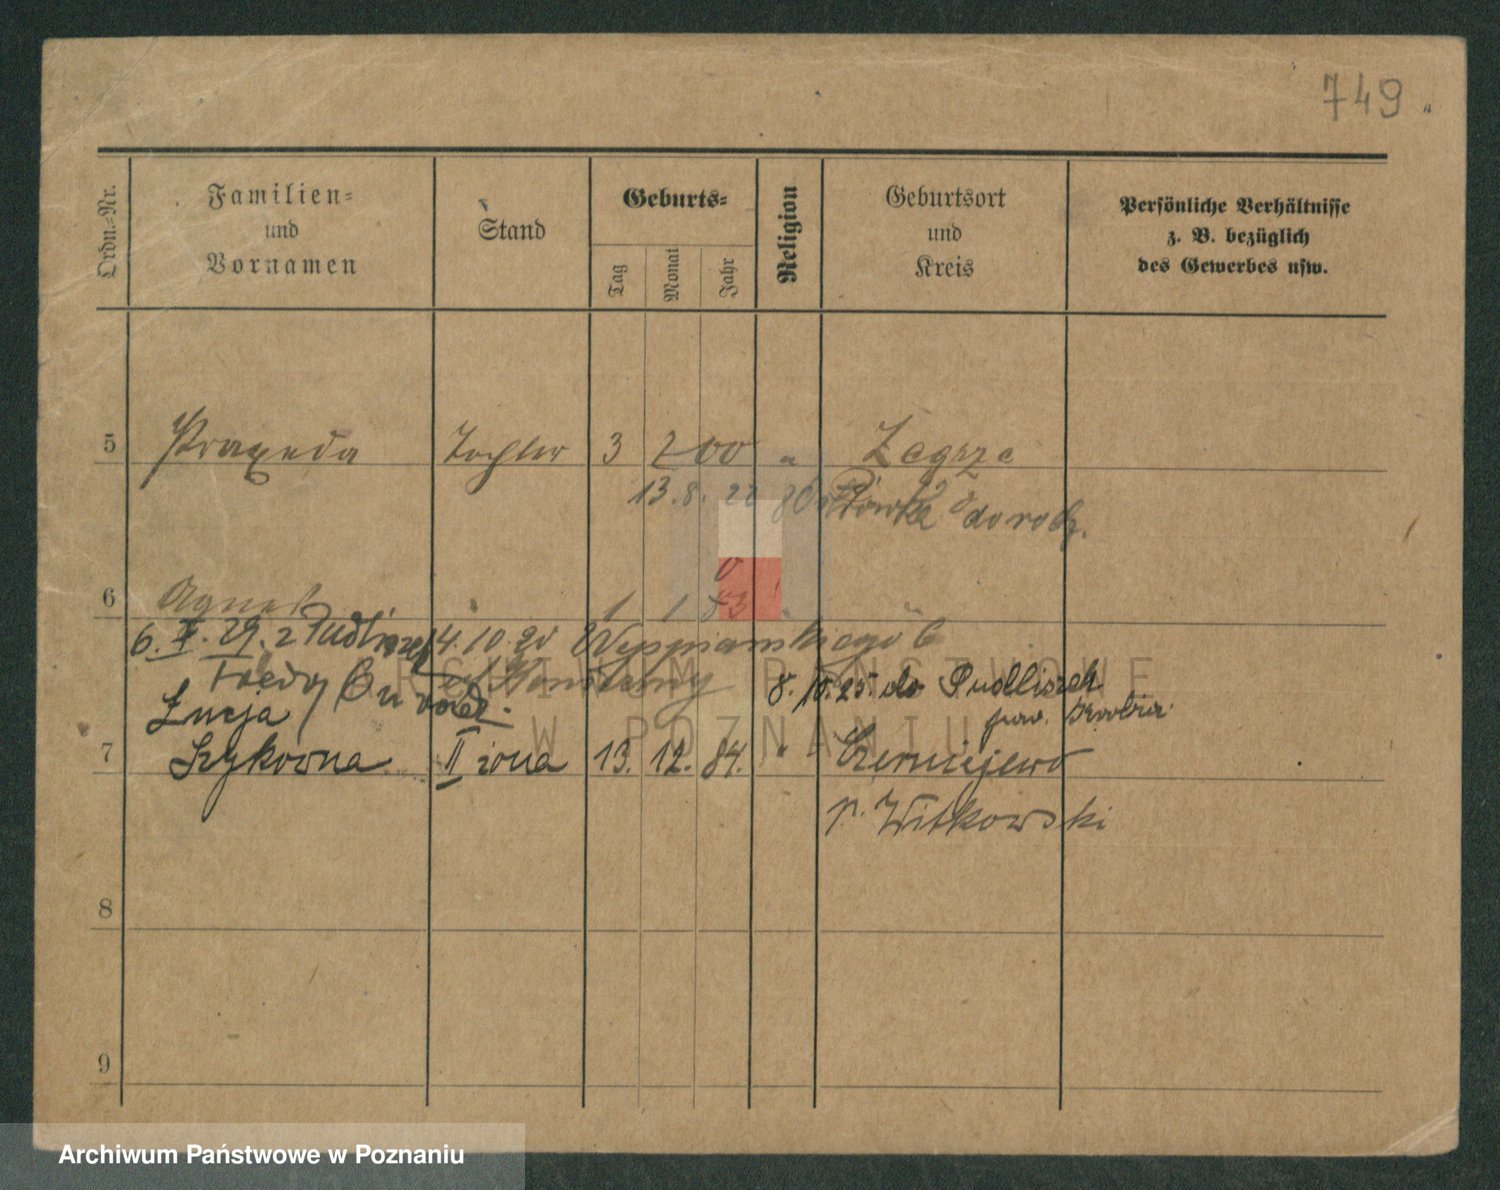 749
Ordn.-Nr.
Familien-
und
Vornamen
Stand
Geburts-
Tag
Monat
Jahr
Religion
Geburtsort
und
Kreis
Persönliche Verhältnisse
z. B. bezüglich
des Gewerbes usw.
5 Praxeda Tochter 3 2 00 " Zegrze
13.8.22
6 Agnes " 1 1 83 "
6. X. 29. z Pudliszek 4.10.20 Wyspianskiego 6
8.10.25 do Pudliszek
pow.
Łucja
7 Szykowna II żona 13. 12. 84. " Czerniejewo
p. Witkowski
8
9
ARCHIWUM PAŃSTWOWE
W POZNANIU
Archiwum Państwowe w Poznaniu